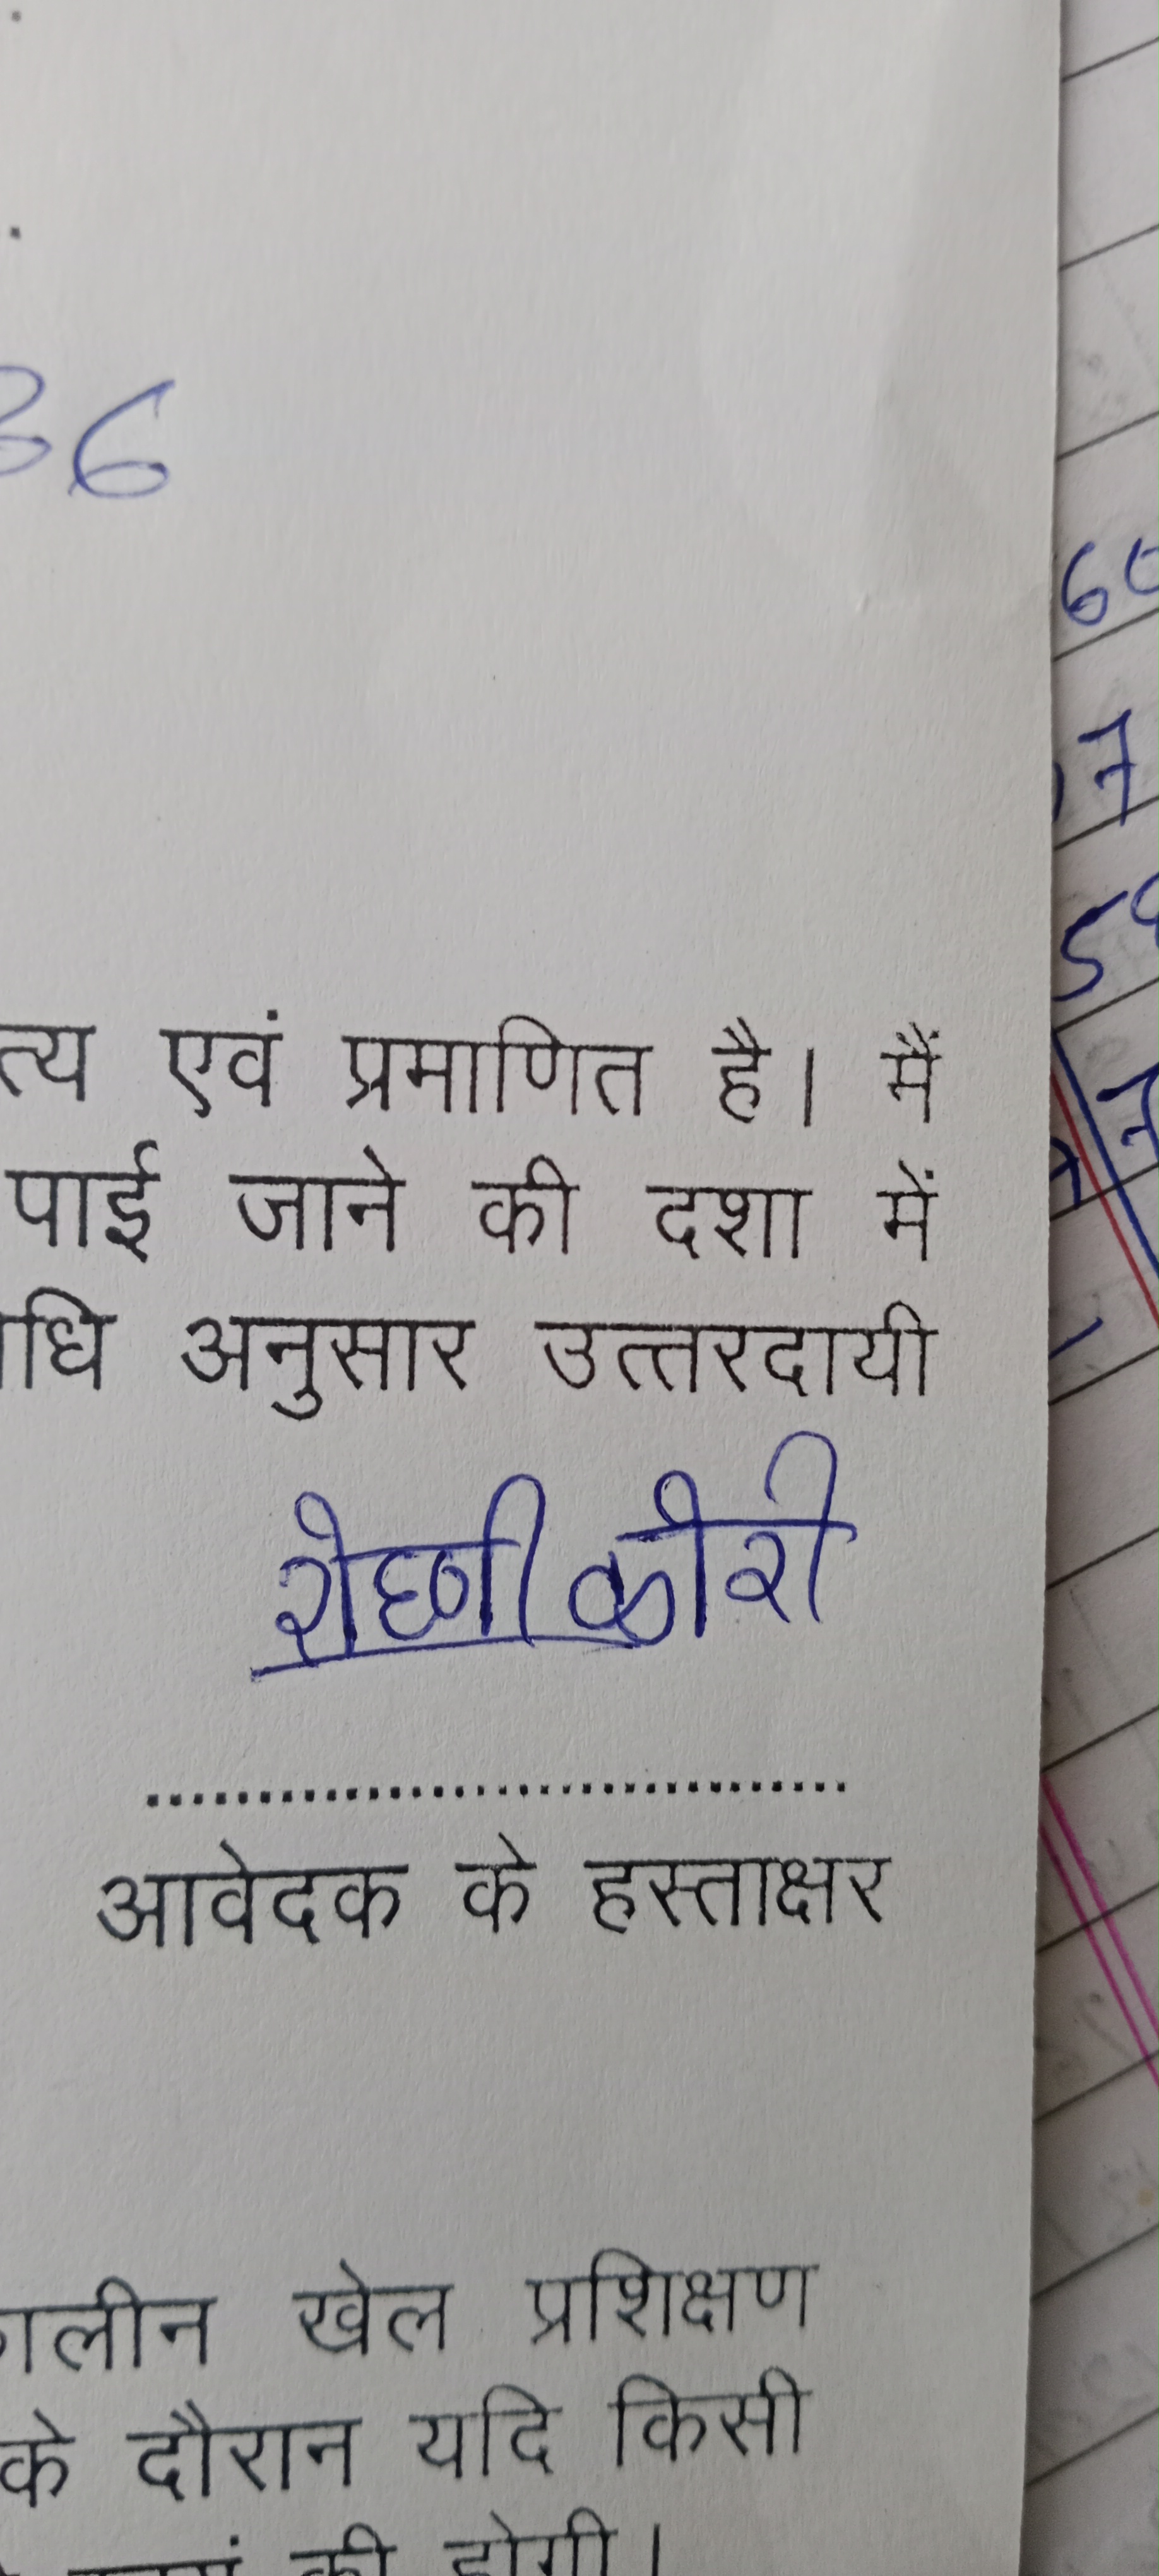 36
त्य एवं प्रमाणित है। मैं
पाई जाने की दशा में
धि अनुसार उत्तरदायी
कोरी
..............................
आवेदक के हस्ताक्षर
लीन खेल प्रशिक्षण
के दौरान यदि किसी
की होगी।